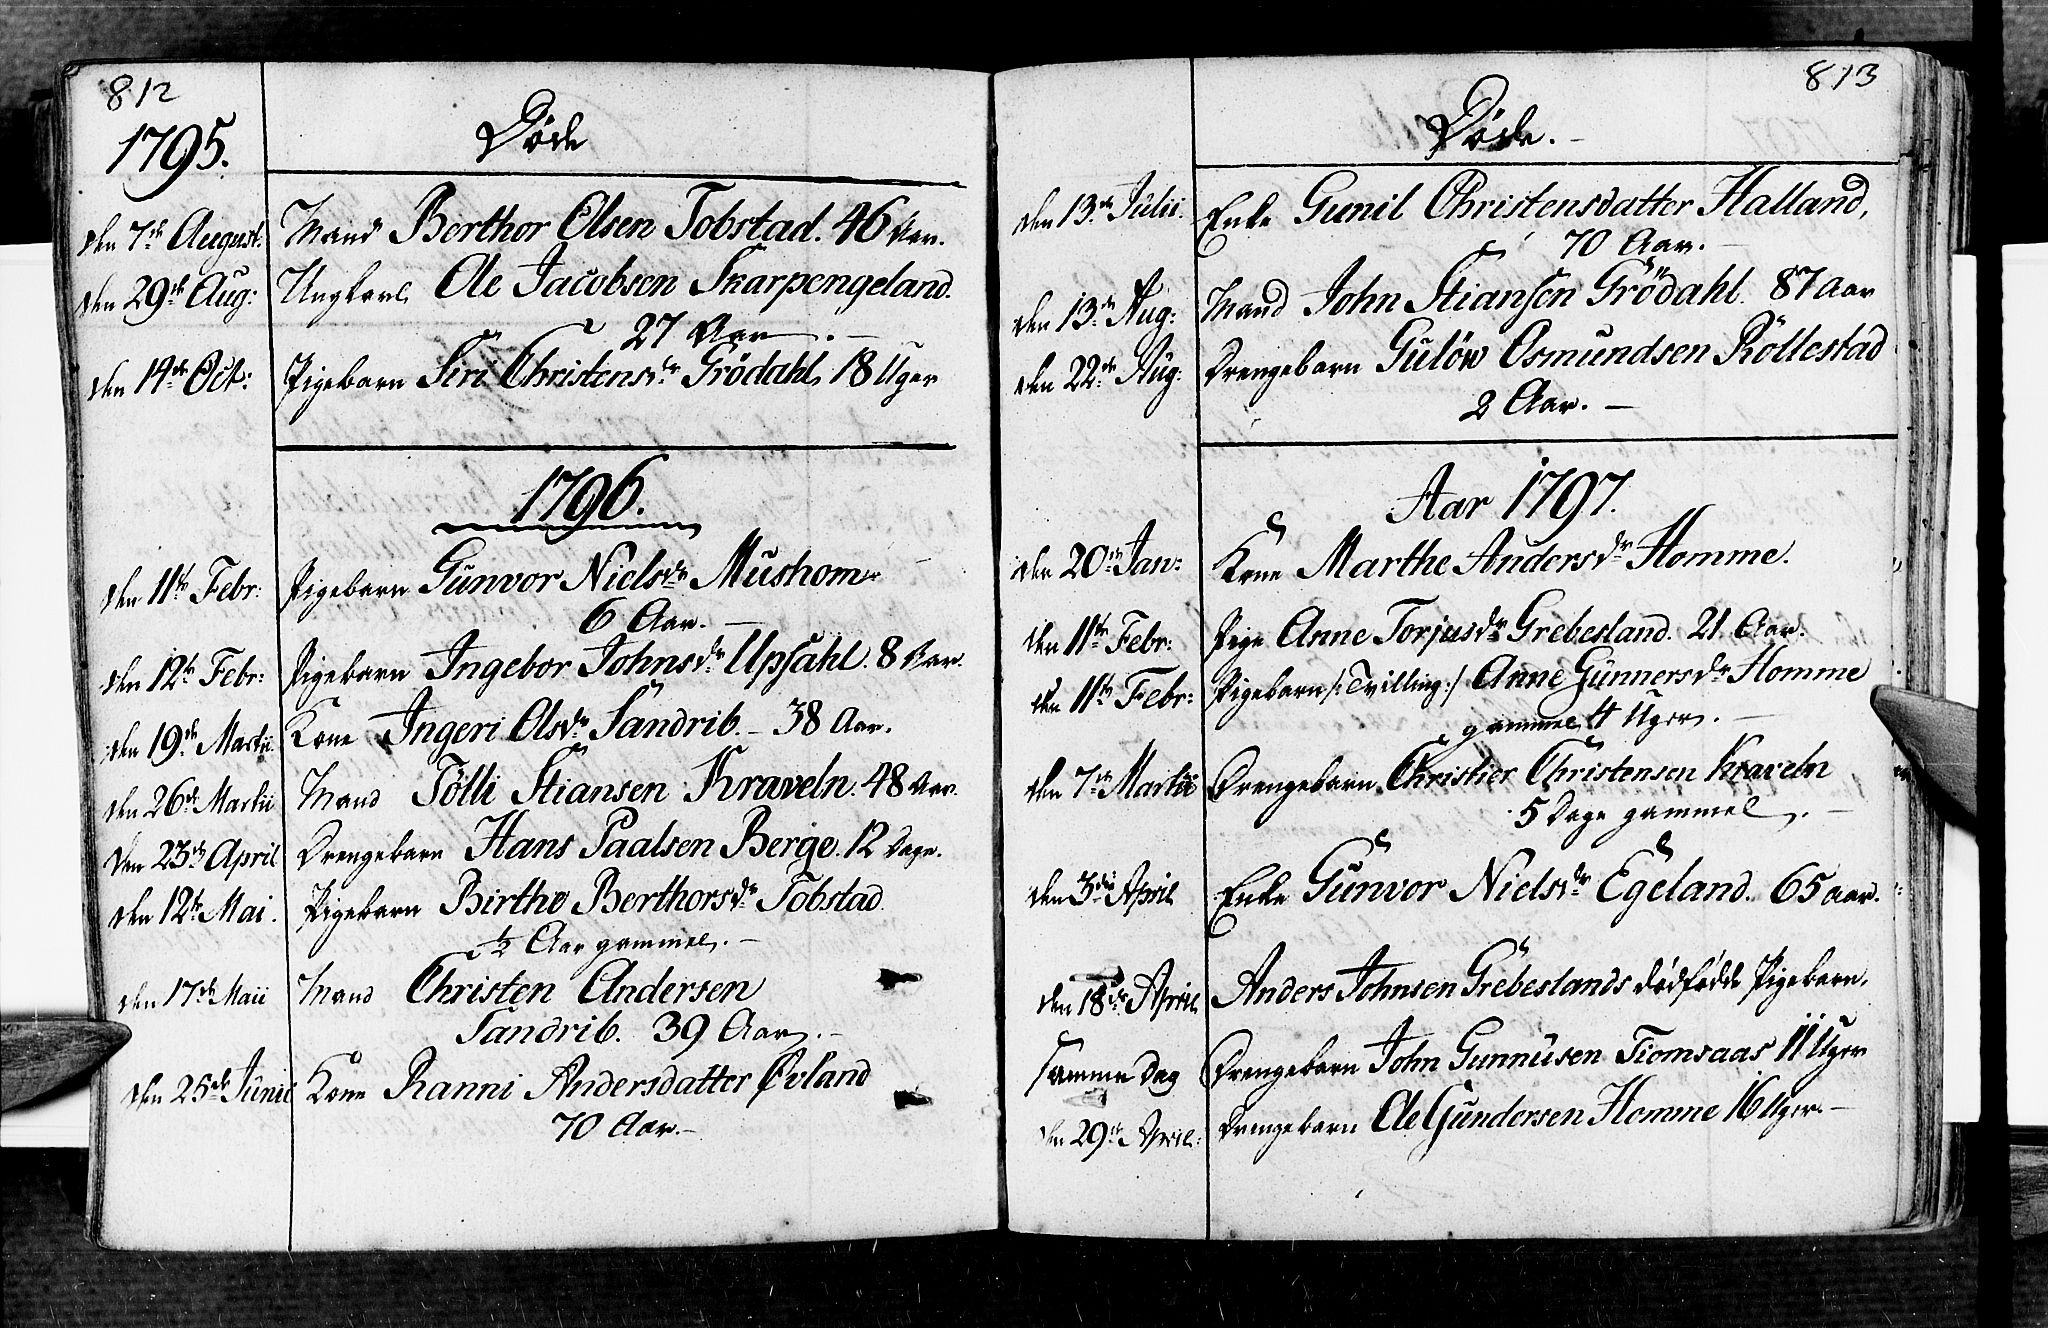 812
1795.
Døde
den 7de August: Mand Berthor Olsen Tobstad. 46 Aar.
den 29de Aug: Ungkarl Ole Jacobsen Skarpengeland.
27 Aar. –
den 14de Oct: Pigebarn Siri Christensdr Grödahl, 18 Uger
1796.
den 11te Febr: Pigebarn Gunvor Nielsdr Mushom
6 Aar. –
den 12te Febr: Pigebarn Ingebor Johnsdr Upsahl. 8 Aar.
den 19de Martii Kone Ingeri Olsdr Sandrib. – 38 Aar.
den 26de Martii Mand Tölli Stiansen Kraveln. 48 Aar.
den 23de April Drengebarn Hans Paalsen Berge. 12 Dage.
den 12te Mai. Pigebarn Birthe Berthorsdr Tobstad.
1/2 Aar gammel. –
den 17de Maii Mand Christen Andersen
Sandrib. 39 Aar. –
den 25de Junii Kone Ranni Andersdatter Øvland
70 Aar. –
813
Døde. –
den 13de Julii. Enke Gunil Christensdatter Halland,
70 Aar. –
den 13de Aug: Mand John Stiansen Grödahl. 87 Aar
den 22de Aug: Drengebarn Gulöw Osmundsen Röllestad
2 Aar. –
Aar 1797.
den 20de Jan: Kone Marthe Andersdr Homme.
den 11te Febr: Pige Anne Torjusdr Grebesland. 21 Aar.
den 11te Febr: Pigebarn /: Tvilling :/ Anne Gunnersdr Homme
gammel 4 Uger. –
den 7de Martii Drengebarn Christier Christensen Kraveln
5 Dage gammel. –
den 3die April Enke Gunvor Nielsdr Egeland. 65 aar.
den 18de April Anders Johnsen Grebeslands dødfødde Pigebarn.
samme Dag Drengebarn John Gunnusen Fiomsaas 11 Uger
den 29de April: Drengebarn Ole Gundersen Homme 16 Uger –